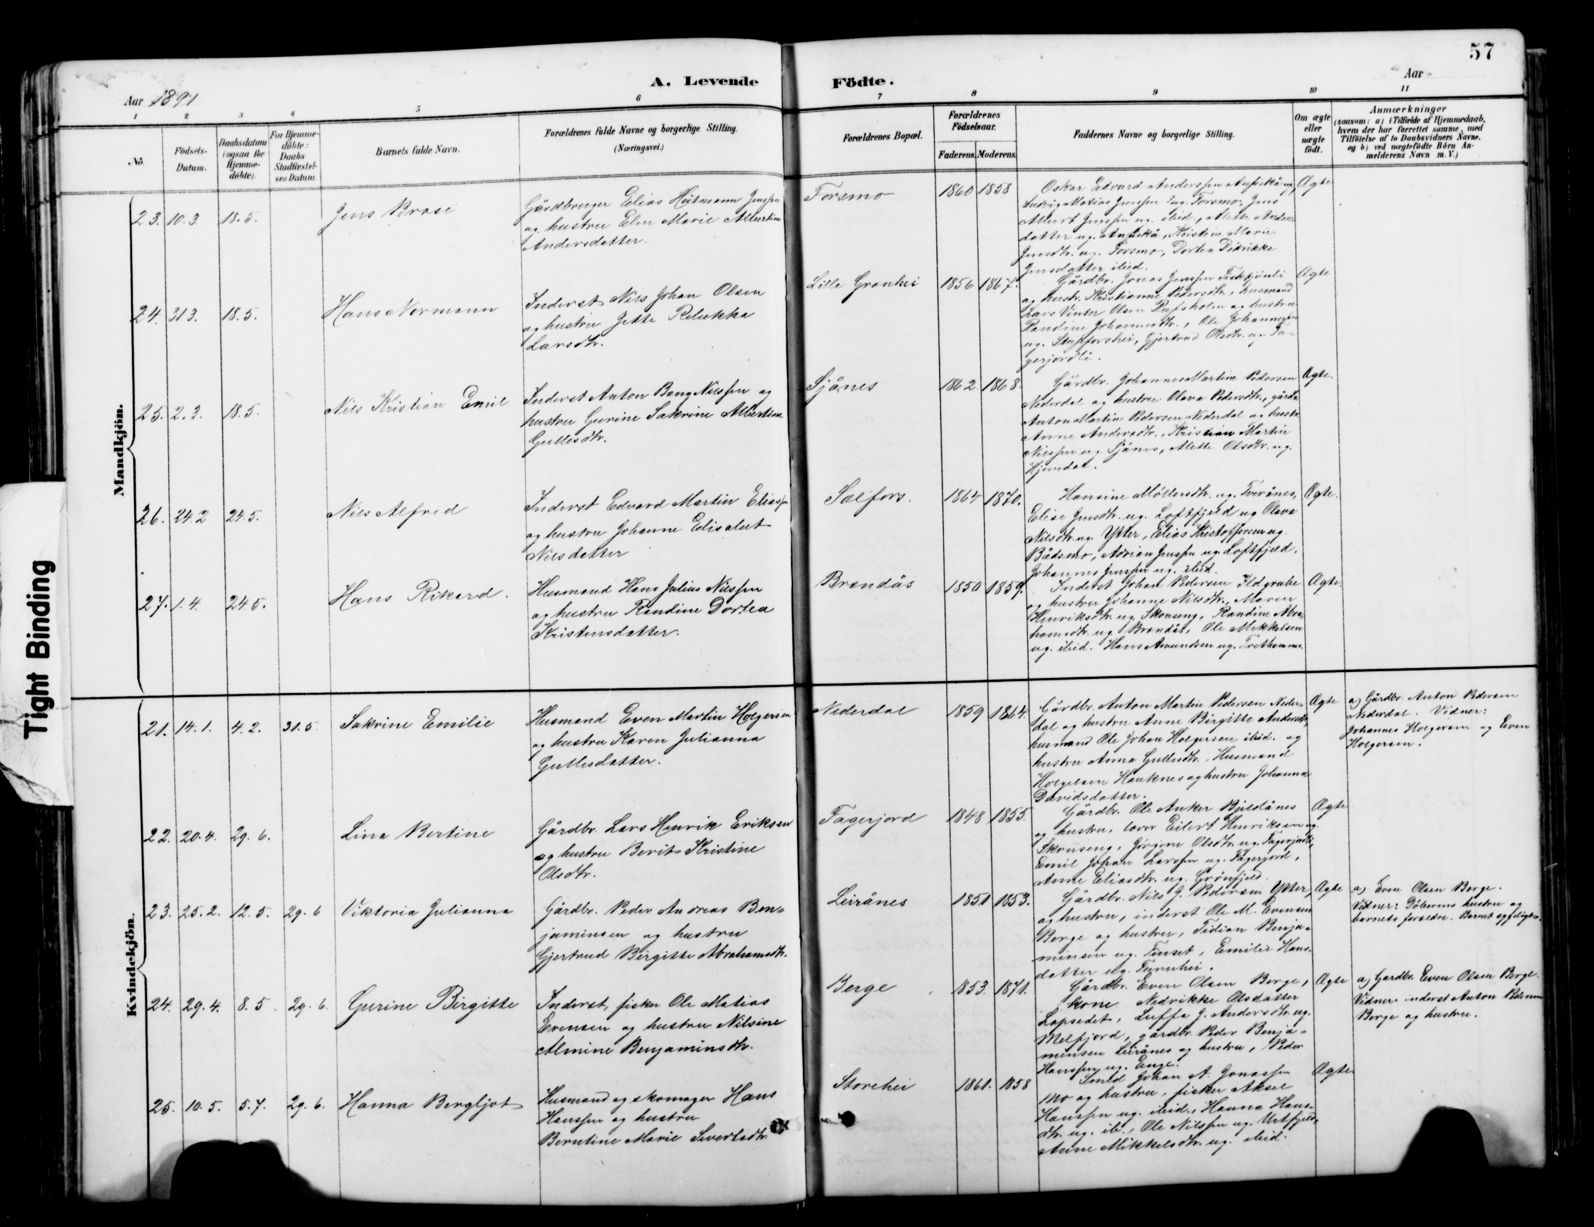 57
A. Levende Födte.
Aar 1891
Aar
1 2 3 4 5 6 7 8 9 10 11
No.
Födsels-Datum.
Daabsdatum (ogsaa for Hjemme-döbte).
For Hjemme-döbte: Daabs Stadfæstel-ses Datum
Barnets fulde Navn.
Forældrenes fulde Navne og borgerlige Stilling.
(Næringsvei.)
Forældrenes Bopæl.
Forældrenes Födselsaar.
Faderens. Moderens.
Faddernes Navne og borgerlige Stilling.
Om ægte eller uægte födt.
Anmærkninger
(saasom: a) i Tilfælde af Hjemmedaab, hvem der har forrettet samme, med Tilföielse af to Daabsvidners Navne. og b) ved uægtefödte Börn An-melderens Navn m. V.)
Mandkjön.
23. 10.3. 18.5. Jens Brose
Gårdbruger Elias Heitmann Jenssen
og hustru Elen Marie Albertine
Andersdatter.
Forsmo 1860 1858
Oskar Edvard Anderssen
Ludvig Matias Jenssen ug. Forsmo, Jens
Albert Jenssen ug. ibid., Alette Anders
datter ug., Kristine Marie
Jensdtr. ug. Forsmo, Dortea Didrikke
Jensdatter ibid.
Ægte
24. 31.3. 18.5. Hans Normann
Inderst Nils Johan Olsen
og hustru Jette Rebekka
Larsdtr.
Lille Grønhei 1856 1867.
Gårdbr. Jonas Jenssen
og hustr. Kristianne Pedersdtr., husmand
Lars Vinter Olsen og hustru
Randine Johannesdtr., Ole Johannessen
ug. Stupforshei, Gjertrud Olsdtr. ug. Fa-
gerjordli.
Ægte
25. 2.3. 18.5. Nils Kristian Emil
Inderst Anton Bang Nilssen og
hustru Gurine Sakrine Albertine
Gullesdtr.
Sjånes 1862 1868.
Gårdbr. Johannes Martin Pedersen
Nederdal og hustru Olava Pedersdtr., gårdbr.
Anton Martin Pedersen Nederdal og hustru
Anne Andersdtr., Kristian Martin
Nilssen ug. Sjånes, Alette Olsdtr. ug.
Ægte.
26. 24.2 24.5. Nils Alfred
Inderst Edvard Martin Eliassen
og hustru Johanne Elisabet
Nilsdatter
Selfors. 1864 1870.
Hansine Møllersdtr. ug. Tverånes,
Elise Jensdtr. ug. Loftfjeld og Olava
Nilsdtr. ug. Ytter, Elias Kristoffersen ug.
Båsmo, Adrian Jenssen ug. Loftfjeld,
Johannes Jenssen ug. ibid.
Ægte.
27. 1.4. 24.5. Hans Rikard.
Husmand Hans Julius Nilssen
og hustru Randine Dortea
Kristensdatter.
Brandås 1850 1859.
Inderst Johan Pedersen Ildgrube
og hustru Johanne Nilsdtr., Maren
Henriksdtr. ug. Skonseng, Randine Abra
hamsdtr. ug. Brandås, Ole Mikkelsen
ug. ibid. Hans Amundsen ug. Trethammer
Ægte.
Kvindekjön.
21. 14.1. 4.2. 31.5 Sakrine Emilie
Husmand Even Martin Holgersen
og hustru Karen Julianna
Gullesdatter.
Nederdal 1859 1864.
Gårdbr. Anton Martin Pedersen Neder-
dal og hustru Anne Birgitte Andersdtr.
husmand Ole Johan Holgersen ibid. og
hustru Anna Gullesdtr., Husmand
Holgersen Hauknes og hustru Johanna
Davidsdatter.
Ægte
a) Gårdbr. Anton Pedersen
Nederdal. Vidner:
Johannes Holgersen og Even
Holgersen.
22. 20.4. 29.6. Lina Bertine
Gårdbr. Lars Henrik Eriksen
og hustru Berit Kristine
Olsdtr.
Fagerjord 1848 1855.
Gårdbr. Ole Anker Bjeldånes
og hustru, Eilert Henriksen ug.
Skonseng, Jørgine Olsdtr. ug. Fagerjordli,
Emil Johan Larssen ug. Fagerjord,
Anne Eliasdtr. ug. Grønfjeld.
Ægte
23. 25.2. 12.5. 29.6 Viktoria Julianna
Gårdbr. Peder Andreas Ben-
jaminsen og hustru
Gjertrud Birgitte Abrahamsdtr.
Leirånes 1851 1853.
Gårdbr. Nils J. Pedersen Ytter,
og hustru, inderst Ole M. Evensen
Berge og hustru, Fidian Benja-
minsen ug. Finset, Emilie Hans-
datter ug.
Ægte
a) Even Olsen Berge.
Vidner: Døberens hustru og
barnets forældre.
24. 29.4. 8.5. 29.6. Gurine Birgitte
Inderst, fisker Ole Matias
Evensen og hustru Nilsine
Almine Benjaminsdtr.
Berge 1853. 1871.
Gårdbr. Even Olsen Berge,
kone Nedrikke Olsdatter
J. Andersdtr. ug.
Melfjord, gårdbr. Peder Benja-
minsen Leirånes og hustru, Peder
Hanssen ug. Enge.
Ægte
a) Gårdbr. Even Olsen Berge.
Vidner: inderst Anton Pedersen
Berge og hustru.
25. 10.5. 5.7. 29.6. Hanna Bergljot
Husmand og skomager Hans
Hanssen og hustru
Berntine Marie Sivertsdtr.
Storehei 1861. 1858
Smed Johan A. Jonassen
Mo og hustru, fisker Aksel
Hanssen ug. ibid., Hanna Hans-
dtr. ug. ib., Ole Nilssen ug.
Anne Mikkelsdtr. ug. ibid.
Ægte
Tight Binding